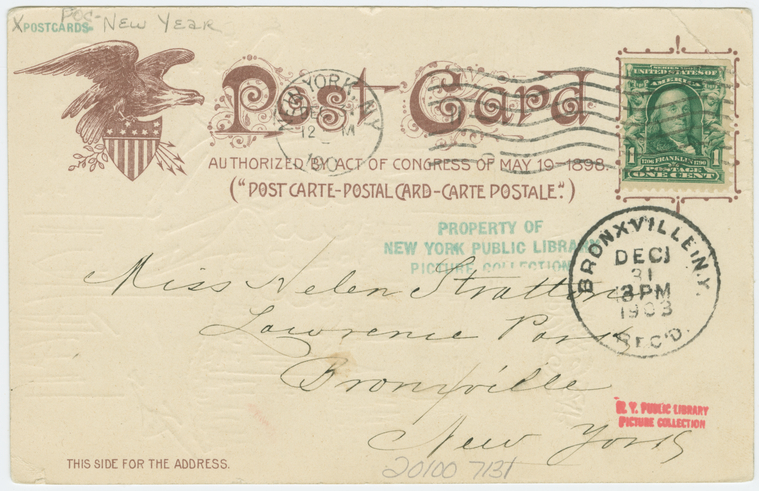 XPOSTCARDS- Poc- New Year
Post-Card
NEW YORK, N.Y.
DEC
12 M
SERIES 1902
UNITED STATES OF
AMERICA
1 1706 FRANKLIN 1790 1
POSTAGE
ONE CENT
AUTHORIZED BY ACT OF CONGRESS OF MAY 19-1898.
("POST CARTE-POSTAL CARD-CARTE POSTALE.")
PROPERTY OF
NEW YORK PUBLIC LIBRARY
PICTURE COLLECTION
BRONXVILLE, N.Y.
DEC
31
3 PM
1903
REC'D.
Miss Helen Stratton
Lawrence Park
Bronxville
New York
N. Y. PUBLIC LIBRARY
PICTURE COLLECTION
20100 7131
THIS SIDE FOR THE ADDRESS.